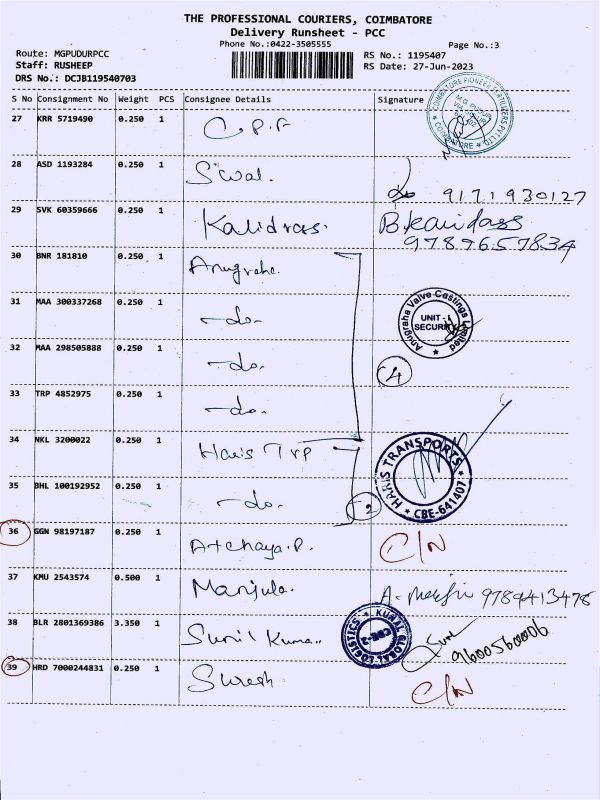 THE PROFESSIONAL COURIERS, COIMBATORE
Delivery Runsheet - PCC
Phone No.:0422-3505555
Page No.:3
Route: MGPUDURPCC
RS No.: 1195407
Staff: RUSHEEP
RS Date: 27-Jun-2023
DRS No.: DCJB119540703
S No Consignment No Weight PCS Consignee Details Signature
COIMBATORE PIONEER FERTILIZERS PVT LTD
COIMBATORE
27 KRR 5719490 0.250 1 C.P.F
28 ASD 1193284 0.250 1 Siwal.
9171930127
29 SVK 60359666 0.250 1 Kalidrass. B.kalidass
9789657834
30 BNR 181810 0.250 1 Anugraha.
31 MAA 300337268 0.250 1 -do-
Anugraha Valve Castings Limited
UNIT - I
SECURITY
32 MAA 298505888 0.250 1 -do-
4
33 TRP 4852975 0.250 1 -do-
34 NKL 3200022 0.250 1 Haris Trp
HARIS TRANSPORTS
* CBE-641407 *
35 BHL 100192952 0.250 1 -do-
2
36 GGN 98197187 0.250 1 Atchaya.P. C/N
37 KMU 2543574 0.500 1 Manjula. 9789413478
38 BLR 2801369386 3.350 1 Sunil Kumar
GLOBAL LOGISTICS
CBE-2
9600560006
39 HRD 7000244831 0.250 1 Suresh C/N